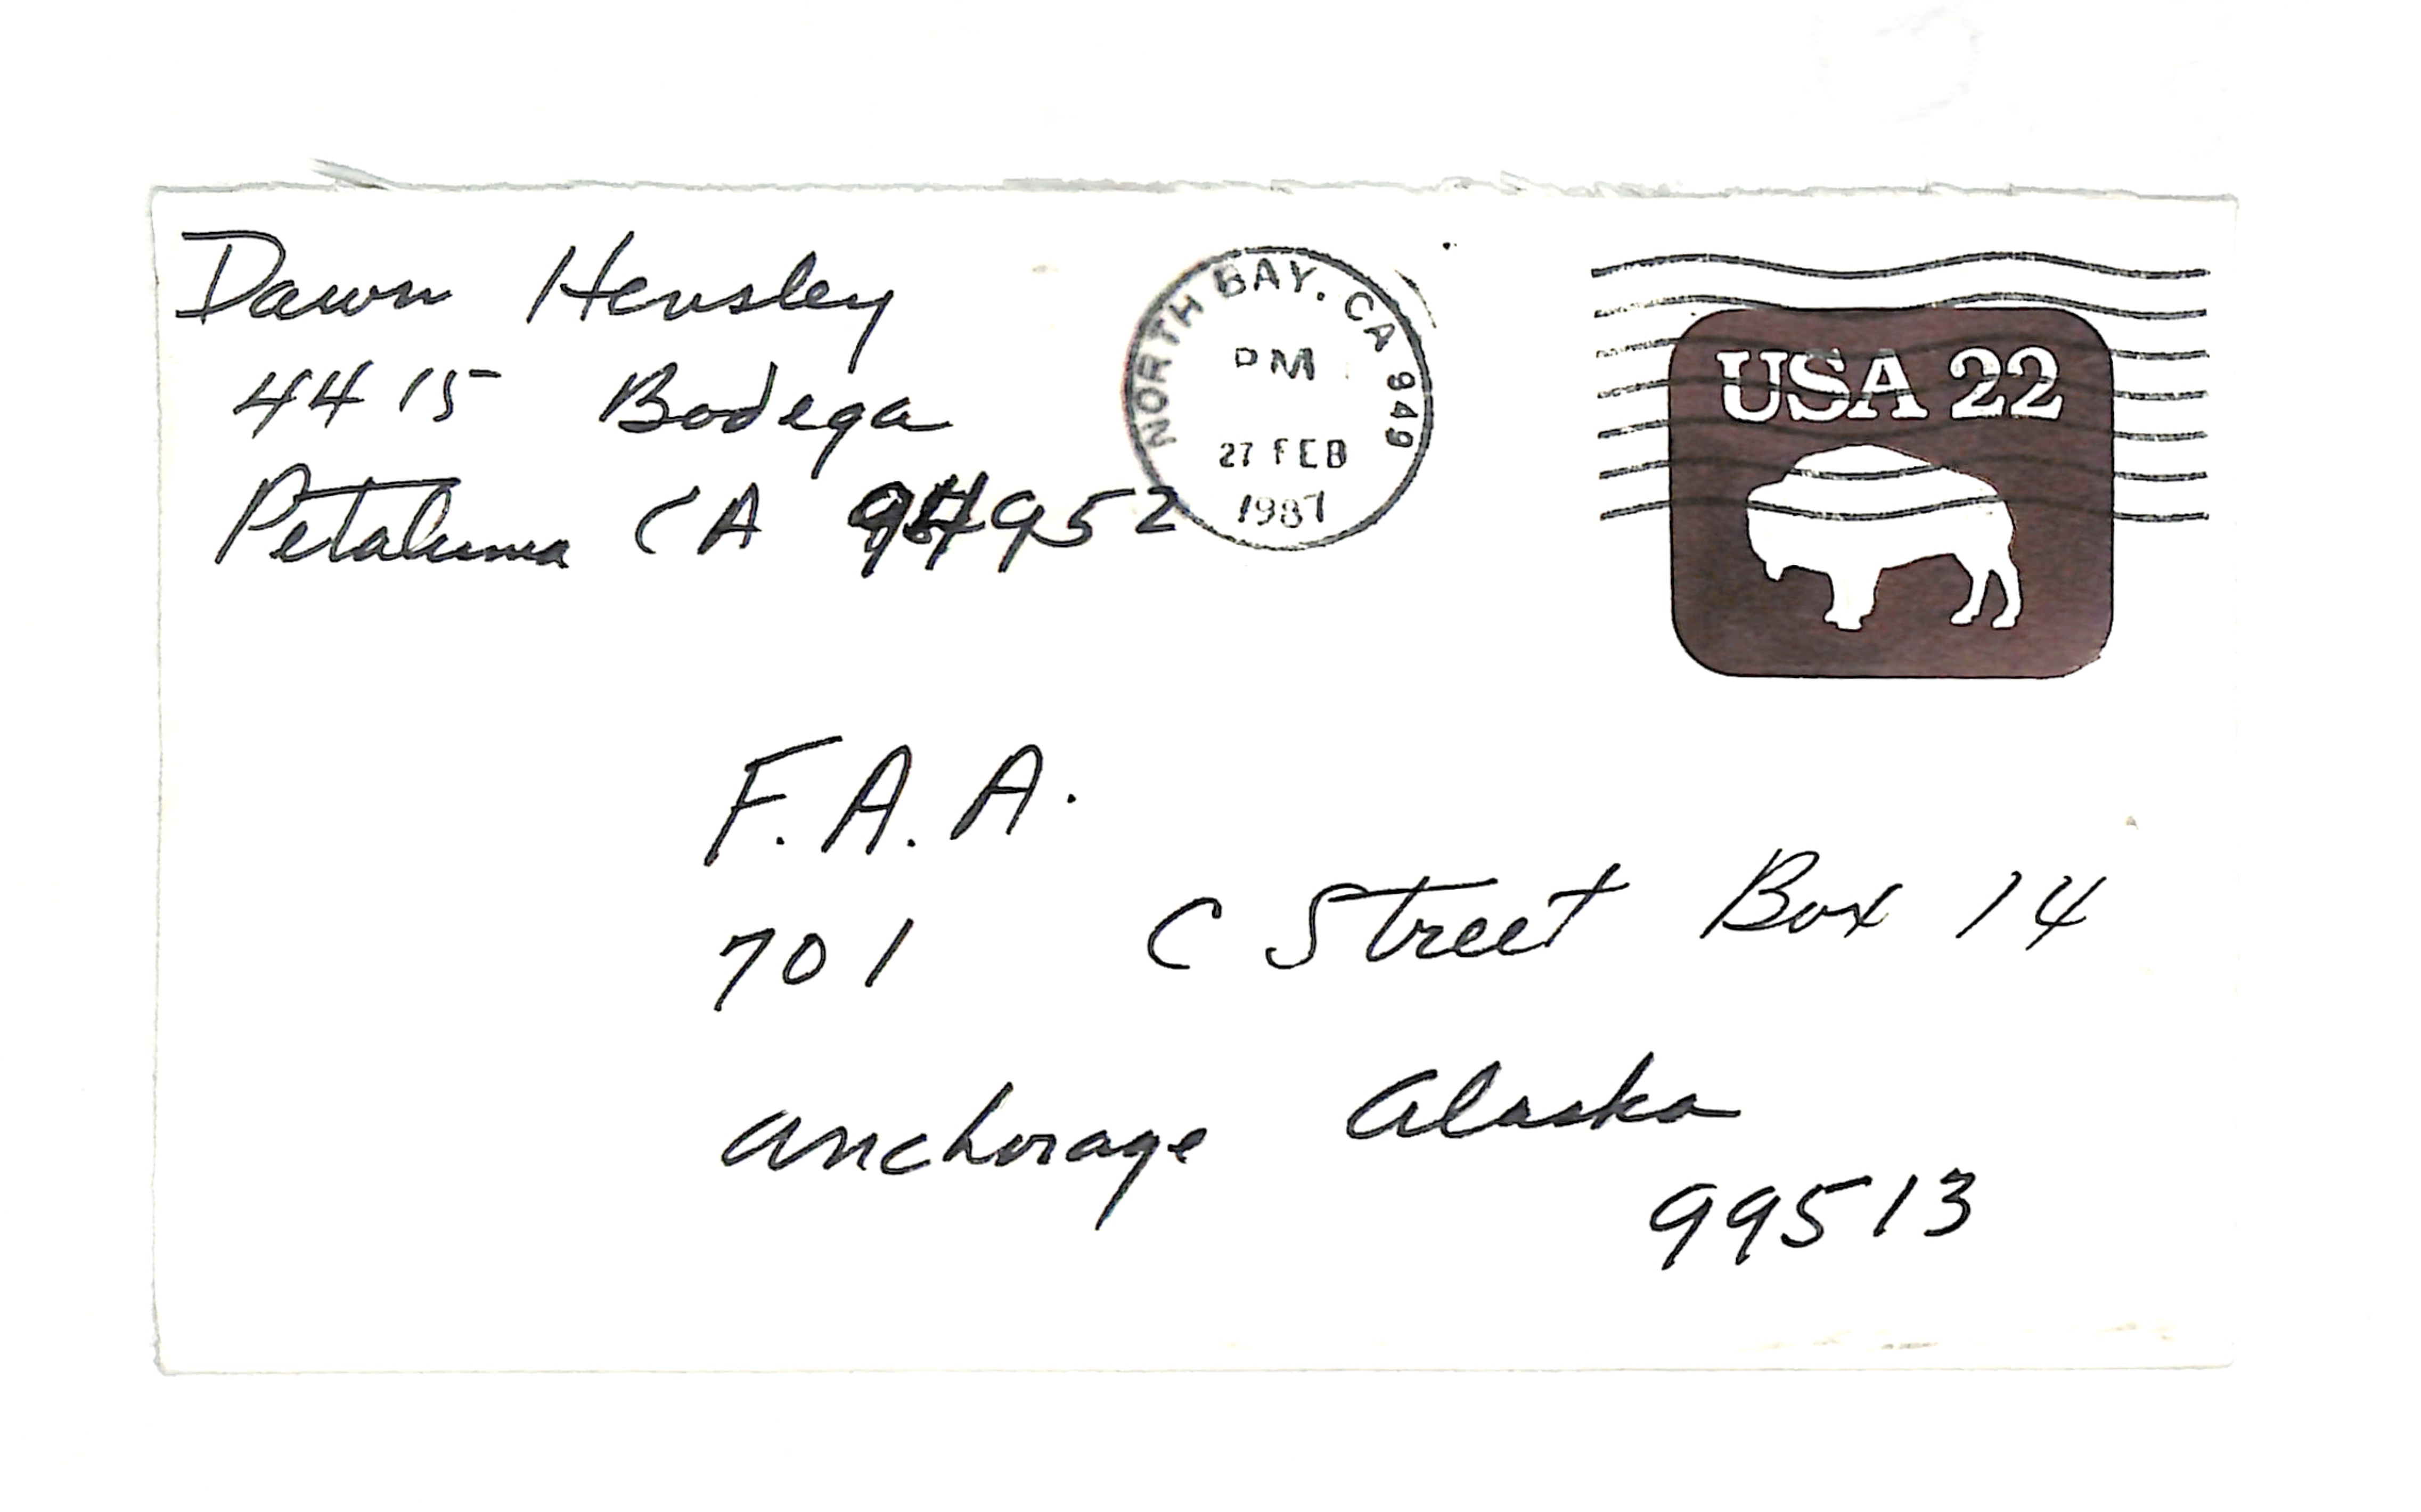 Dawn Hensley
4415 Bodega
Petaluma CA 94952
NORTH BAY, CA 949
PM
27 FEB
1987
USA 22
F.A.A.
701 C Street Box 14
Anchorage Alaska
99513